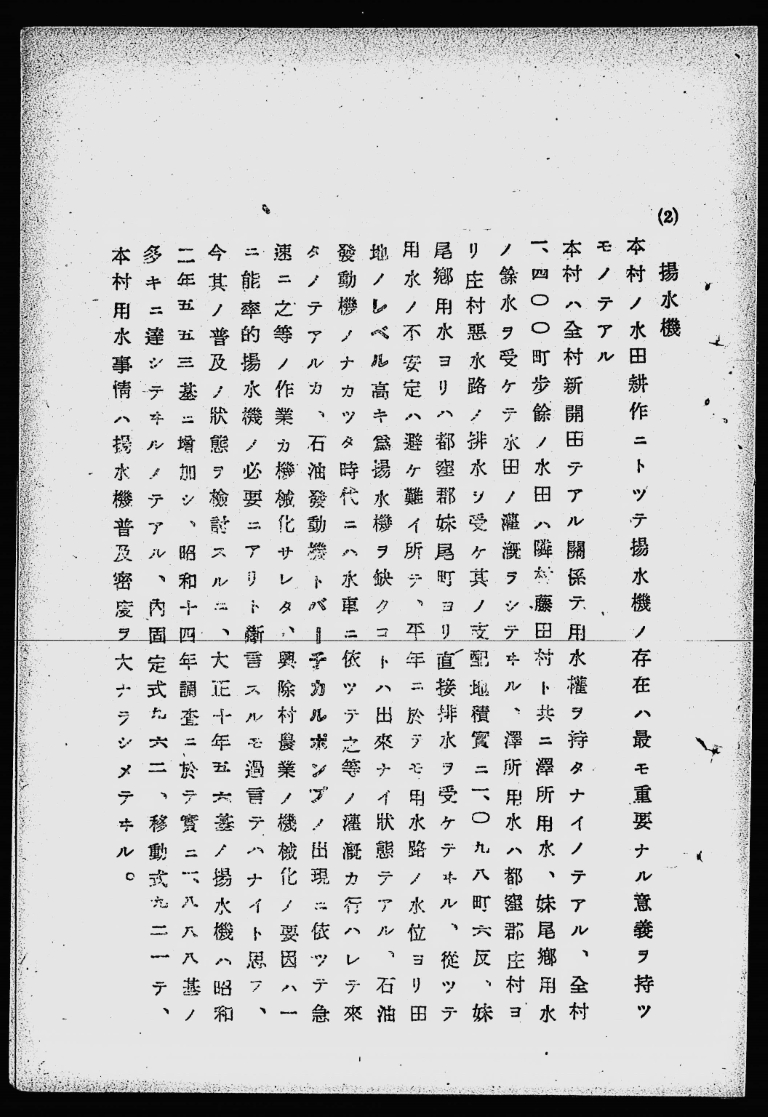 (2) 揚水機
本村ノ水田耕作ニトツテ揚水機ノ存在ハ最モ重要ナル意義ヲ持ツ
モノテアル
本村ハ全村新開田テアル關係テ用水權ヲ持タナイノテアル、全村
一、四〇〇町步餘ノ水田ハ隣村藤田村ト共ニ澤所用水、妹尾鄕用水
ノ餘水ヲ受ケテ水田ノ灌漑ヲシテヰル、澤所用水ハ都窪郡庄村ヨ
リ庄村惡水路ノ排水ヲ受ケ其ノ支配地積實ニ一、〇九八町六反、妹
尾鄕用水ヨリハ都窪郡妹尾町ヨリ直接排水ヲ受ケテヰル、從ツテ
用水ノ不安定ハ避ケ難イ所テ、平年ニ於テモ用水路ノ水位ヨリ田
地ノレベル高キ爲揚水機ヲ缺クコトハ出來ナイ狀態テアル、石油
發動機ノナカツタ時代ニハ水車ニ依ツテ之等ノ灌漑カ行ハレテ來
タノテアルカ、石油發動機トバーチカルポンプノ出現ニ依ツテ急
速ニ之等ノ作業カ機械化サレタ、興除村農業ノ機械化ノ要因ハ一
ニ能率的揚水機ノ必要ニアリト斷言スルモ過言テハナイト思フ、
今其ノ普及ノ狀態ヲ檢討スルニ、大正十年五六基ノ揚水機ハ昭和
二年五五三基ニ增加シ、昭和十四年調査ニ於テ實ニ一、八八八基ノ
多キニ達シテヰルノテアル、內固定式九六二、移動式九二一テ、
本村用水事情ハ揚水機普及密度ヲ大ナラシメテヰル。